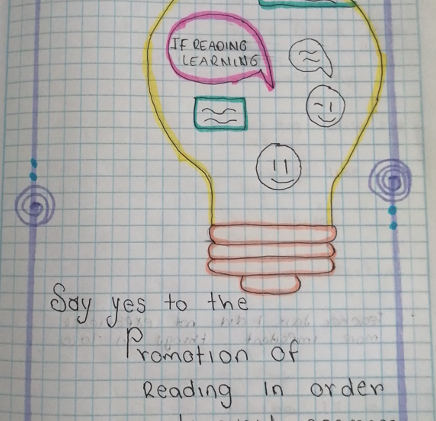 IF READING
LEARNING
Say yes to the
Promotion of
Reading in order